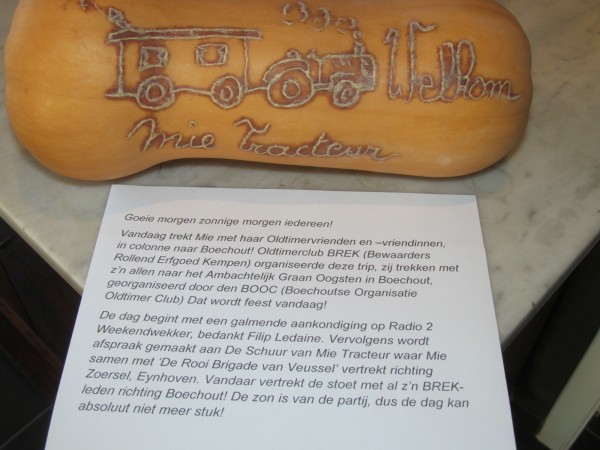 Welkom
Mie Tracteur
Goeie morgen zonnige morgen iedereen!
Vandaag trekt Mie met haar Oldtimervrienden en –vriendinnen,
in colonne naar Boechout! Oldtimerclub BREK (Bewaarders
Rollend Erfgoed Kempen) organiseerde deze trip, zij trekken met
z'n allen naar het Ambachtelijk Graan Oogsten in Boechout,
georganiseerd door den BOOC (Boechoutse Organisatie
Oldtimer Club) Dat wordt feest vandaag!
De dag begint met een galmende aankondiging op Radio 2
Weekendwekker, bedankt Filip Ledaine. Vervolgens wordt
afspraak gemaakt aan De Schuur van Mie Tracteur waar Mie
samen met 'De Rooi Brigade van Veussel' vertrekt richting
Zoersel, Eynhoven. Vandaar vertrekt de stoet met al z'n BREK-
leden richting Boechout! De zon is van de partij, dus de dag kan
absoluut niet meer stuk!